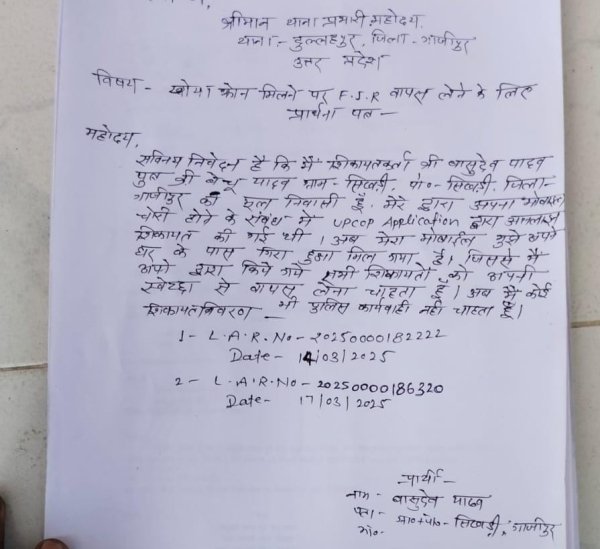 श्रीमान थाना प्रभारी महोदय,
थाना - दुल्लहपुर, जिला - गाजीपुर
उत्तर प्रदेश
विषय - खोया फोन मिलने पर F.I.R वापस लेने के लिए
प्रार्थना पत्र -
महोदय,
सविनय निवेदन है कि मैं शिकायतकर्ता श्री वासुदेव यादव
पुत्र श्री बेचू यादव ग्राम - सिखड़ी, पो० - सिखड़ी, जिला -
गाजीपुर का मूल निवासी हूँ. मेरे द्वारा अपना मोबाइल
चोरी होने के संबंध में UPCOP Application द्वारा आनलाइन
शिकायत की गई थी। अब मेरा मोबाईल मुझे अपने
घर के पास गिरा हुआ मिल गया है। जिससे मैं
अपने द्वारा किये गये सभी शिकायतो को अपनी
स्वेच्छा से वापस लेना चाहता हूँ। अब मैं कोई
शिकायत विवरण - भी पुलिस कार्यवाही नहीं चाहता हूँ।
1 - L.A.R.No - 20250000182222
Date - 14/03/2025
2 - L.A.R.No - 20250000186320
Date - 17/03/2025
प्रार्थी -
नाम - वासुदेव यादव
पता - ग्रा०+पो० - सिखड़ी, गाजीपुर
मो० -